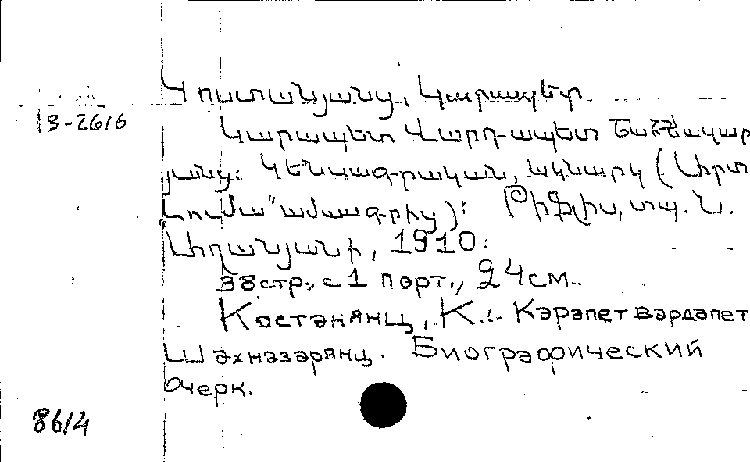 Կոստանյանց, Կարապետ
13-2616
Կարապետ Վարդապետ Շահնազար
յանց: Կենսագրական, ակնարկ (Արտ
Լումա" ամսագրից): Թիֆլիս, տպ. Ն.
Աղանյանի, 1910:
38 стр., с 1 порт., 24 см.
Костанянц, К.. Карапет вардапет
Шахназарянц. Биографический
очерк.
8614